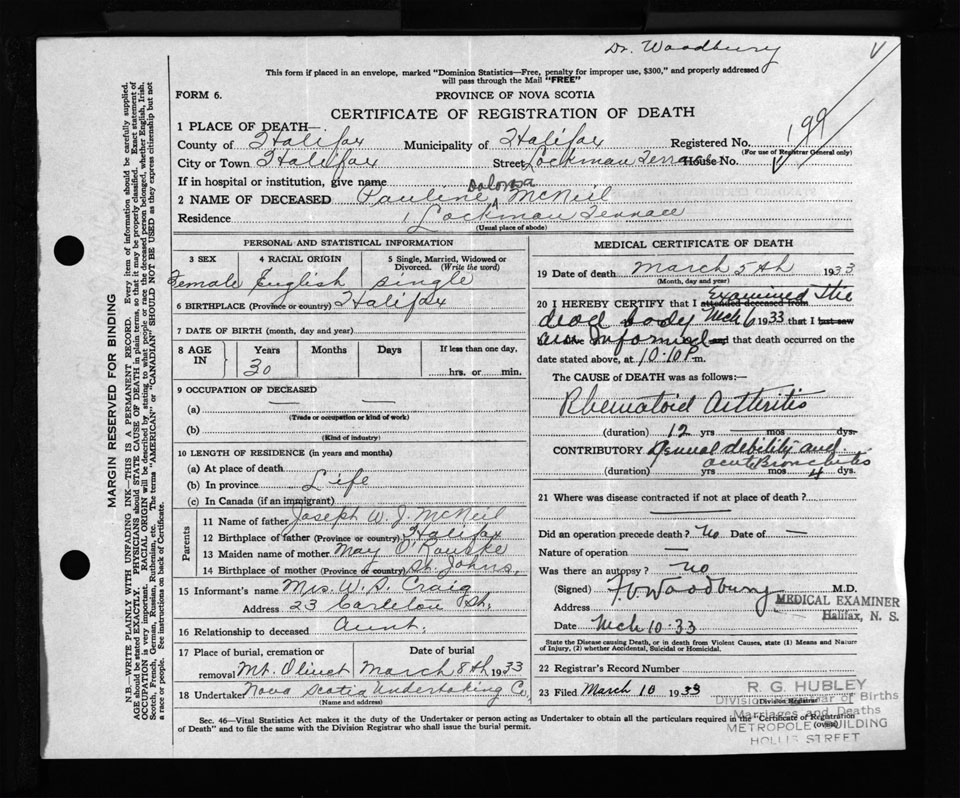 Dr. Woodbury
This form if placed in an envelope, marked "Dominion Statistics—Free, penalty for improper use, $300," and properly addressed
will pass through the Mail "FREE"
FORM 6.
PROVINCE OF NOVA SCOTIA
CERTIFICATE OF REGISTRATION OF DEATH
1 PLACE OF DEATH—
County of Halifax Municipality of Halifax Registered No. 199
(For use of Registrar General only)
City or Town Halifax Street Lockman Terrace House No.
If in hospital or institution, give name
2 NAME OF DECEASED Pauline McNeil
Residence 1 Lockman Terrace
(Usual place of abode)
PERSONAL AND STATISTICAL INFORMATION
3 SEX 4 RACIAL ORIGIN 5 Single, Married, Widowed or Divorced. (Write the word)
Female English single
6 BIRTHPLACE (Province or country) Halifax
7 DATE OF BIRTH (month, day and year)
8 AGE IN Years Months Days If less than one day.
30 hrs. or min.
9 OCCUPATION OF DECEASED
(a) —
(Trade or occupation or kind of work)
(b)
(Kind of industry)
10 LENGTH OF RESIDENCE (in years and months)
(a) At place of death
(b) In province Life
(c) In Canada (if an immigrant)
Parents
11 Name of father Joseph W. J. McNeil
12 Birthplace of father (Province or country) Halifax
13 Maiden name of mother May O'Rourke
14 Birthplace of mother (Province or country) St. Johns,
15 Informant's name Mrs W. S. Craig
Address 23 Carleton St,
16 Relationship to deceased Aunt.
17 Place of burial, cremation or removal Date of burial
Mt. Olivet March 8th 1933
18 Undertaker Nova Scotia Undertaking Co,
(Name and address)
MEDICAL CERTIFICATE OF DEATH
19 Date of death March 5th 1933
(Month, day and year)
20 I HEREBY CERTIFY that I attended deceased from Examined the
dead body Mch 6 1933 that I last saw
am Informed and that death occurred on the
date stated above, at 10:10 P.m.
The CAUSE of DEATH was as follows:—
Rhematoid Arthritis
(duration) 12 yrs — mos — dys.
CONTRIBUTORY General debility and
acute Bronchitis
(duration) yrs mos 4 dys.
21 Where was disease contracted if not at place of death?
Did an operation precede death? No Date of —
Nature of operation —
Was there an autopsy? No
(Signed) F. V. Woodbury M.D.
Address MEDICAL EXAMINER
Halifax, N. S.
Date Mch 10 - 33
State the Disease causing Death, or in death from Violent Causes, state (1) Means and Nature
of Injury, (2) whether Accidental, Suicidal or Homicidal.
22 Registrar's Record Number
23 Filed March 10 1933
(Division Registrar)
R. G. HUBLEY
Division Registrar of Births
Marriages and Deaths
METROPOLE BUILDING
HOLLIS STREET
Sec. 46—Vital Statistics Act makes it the duty of the Undertaker or person acting as Undertaker to obtain all the particulars required in the "Certificate of Registration
of Death" and to file the same with the Division Registrar who shall issue the burial permit. (over)
MARGIN RESERVED FOR BINDING
N.B.—WRITE PLAINLY WITH UNFADING INK—THIS IS A PERMANENT RECORD. Every item of information should be carefully supplied.
AGE should be stated EXACTLY. PHYSICIANS should STATE CAUSE OF DEATH in plain terms, so that it may be properly classified. Exact statement of
OCCUPATION is very important. RACIAL ORIGIN will be described by stating to what people or race the deceased person belonged, whether English, Irish,
Scotch, French, German, Russian, Ruthenian, etc. The terms "AMERICAN" or "CANADIAN" SHOULD NOT BE USED as they express citizenship but not
a race or people. See instructions on back of Certificate.